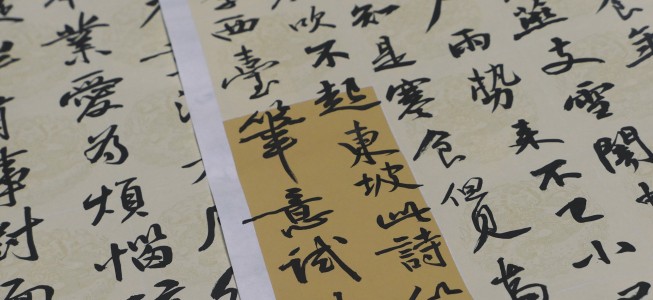 支雪闇
雨勢來不已小
知是寒食但見烏
吹不起東坡此詩似
西臺筆意試
業愛為煩惱
事討面